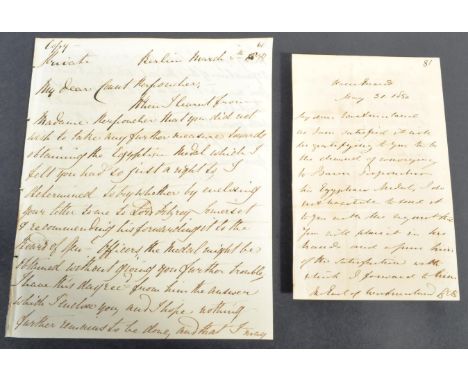 Copy
61
Private Berlin March
My dear Count Perponcher,
When I learnt from
Madame Perponcher that you did not
wish to take any further measure towards
obtaining the Egyptian Medal which I
felt you had so just a right to, I
determined to try whether by enclosing
your letter to me to Lord Fitzroy Somerset
& recommending his forwarding it to the
Board of Gen. Officers the medal might be
obtained without giving you further trouble,
I have this day recd. from him the answer
which I enclose you, and I hope nothing
further remains to be done, and that I may
81
Horse Guards
May 31 1850
My dear Westmorland
As I am satisfied it will
be gratifying to you to have
the channel of conveying
to Baron Perponcher
his Egyptian Medal, I do
not hesitate to send it
to you with the request that
you will place it in his
hands and assure him
of the satisfaction with
which I forward it to him
The Earl of Westmorland